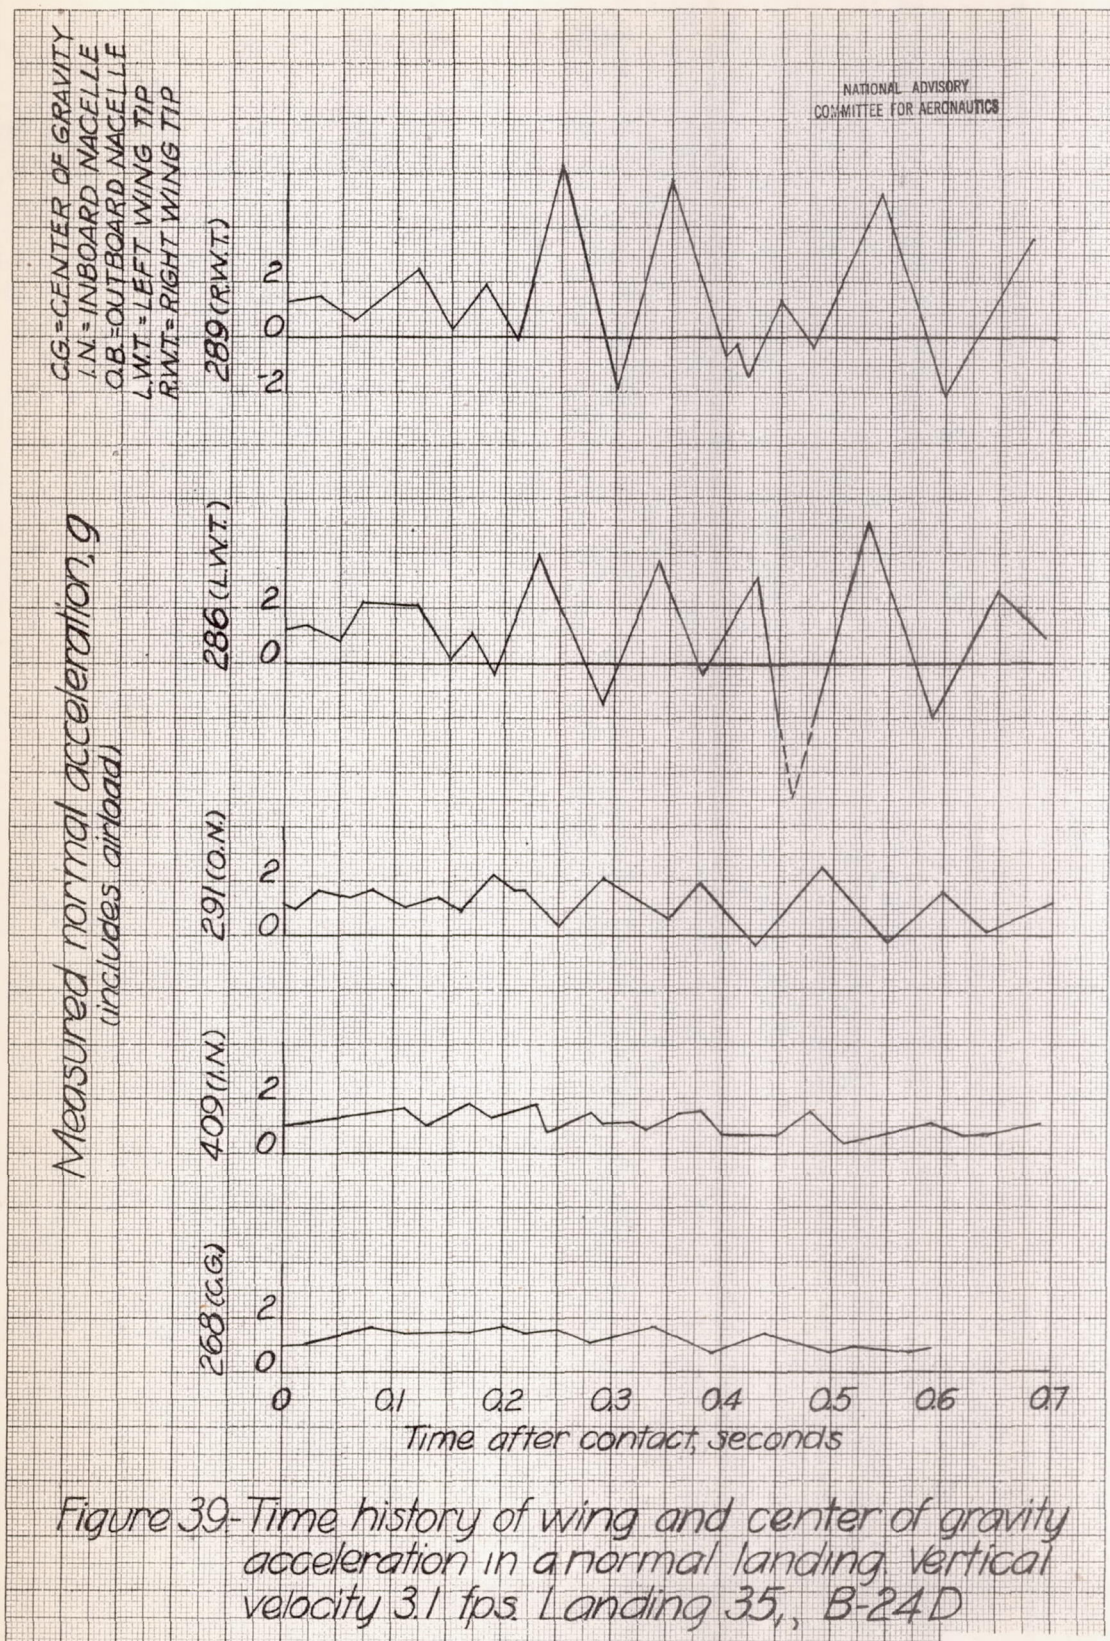 C.G.=CENTER OF GRAVITY
I.N.= INBOARD NACELLE
O.B.=OUTBOARD NACELLE
L.W.T.=LEFT WING TIP
R.W.T.=RIGHT WING TIP
NATIONAL ADVISORY
COMMITTEE FOR AERONAUTICS
Measured normal acceleration, g
(includes airload)
289 (R.W.T.)
2
0
-2
286 (L.W.T.)
2
0
291 (O.N.)
2
0
409 (I.N.)
2
0
268 (C.G.)
2
0
0 0.1 0.2 0.3 0.4 0.5 0.6 0.7
Time after contact, seconds
Figure 39.-Time history of wing and center of gravity
acceleration in a normal landing. Vertical
velocity 3.1 fps. Landing 35,, B-24D